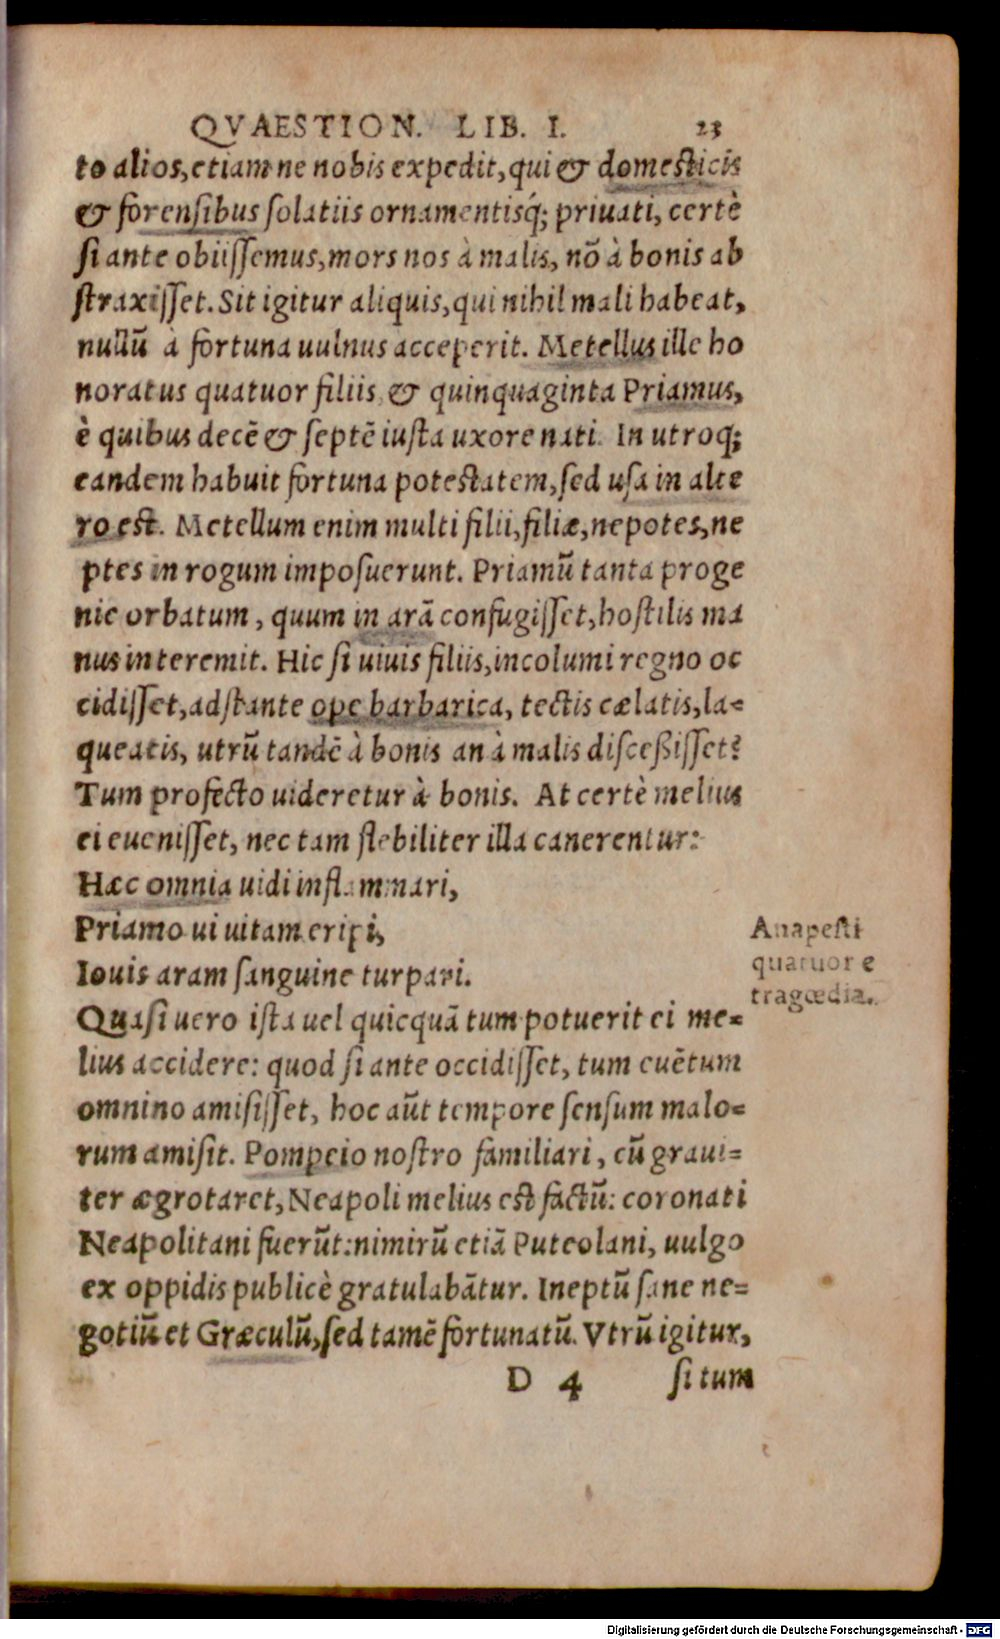 QVAESTION. LIB. I. 23
to alios, etiam ne nobis expedit, qui & domesticis
& forensibus solatiis ornamentisq́; priuati, certè
si ante obiissemus, mors nos à malis, nō à bonis ab
straxisset. Sit igitur aliquis, qui nihil mali habeat,
nullū à fortuna uulnus acceperit. Metellus ille ho
noratus quatuor filiis, & quinquaginta Priamus,
è quibus decē & septē iusta uxore nati. In utroq;
eandem habuit fortuna potestatem, sed usa in alte
ro est. Metellum enim multi filii, filiæ, nepotes, ne
ptes in rogum imposuerunt. Priamū tanta proge
nie orbatum, quum in arā confugisset, hostilis ma
nus interemit. Hic si uiuis filiis, incolumi regno oc
cidisset, adstante ope barbarica, tectis cælatis, la=
queatis, utrū tandē à bonis an à malis discessisset?
Tum profecto uideretur à bonis. At certè melius
ei euenisset, nec tam flebiliter illa canerentur:
Hæc omnia uidi inflammari,
Priamo ui uitam eripi,
Iouis aram sanguine turpari.
Anapesti
quatuor e
tragœdia.
Quasi uero ista uel quicquā tum potuerit ei me=
lius accidere: quod si ante occidisset, tum euētum
omnino amisisset, hoc aūt tempore sensum malo=
rum amisit. Pompeio nostro familiari, cū graui=
ter ægrotaret, Neapoli melius est factū: coronati
Neapolitani fuerūt: nimirū etiā Puteolani, uulgo
ex oppidis publicè gratulabātur. Ineptū sane ne=
gotiū et Græculū, sed tamē fortunatū. Vtrū igitur,
D 4 si tum
Digitalisierung gefördert durch die Deutsche Forschungsgemeinschaft - DFG